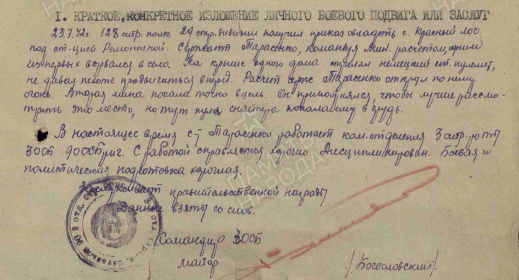 I. КРАТКОЕ, КОНКРЕТНОЕ ИЗЛОЖЕНИЕ ЛИЧНОГО БОЕВОГО ПОДВИГА ИЛИ ЗАСЛУГ
23.7.42г. 128 стр. полк 29 стр. дивизии получил приказ овладеть с. Красный лог
под ст-цией Ремонтной. Сержант Тарасенко, командуя мин. расчетом, одним
из первых ворвался в село. На крыше одного дома стоял немецкий ст. пулемет,
не давая пехоте продвигаться вперед. Расчет серж. Тарасенко открыл по нему
огонь. Вторая мина попала точно в цель. Он приподнялся, чтобы лучше рассмо-
треть это место, но тут пуля снайпера попала ему в грудь.
В настоящее время с-т Тарасенко работает ком. отделения 3 стр. роты
90 ОСБ. С работой справляется хорошо. Дисциплинирован. Боевая и
политическая подготовка хорошая.
правительственной награды
Данные взяты со слов.
Командир ОСБ
Майор /Богословский/